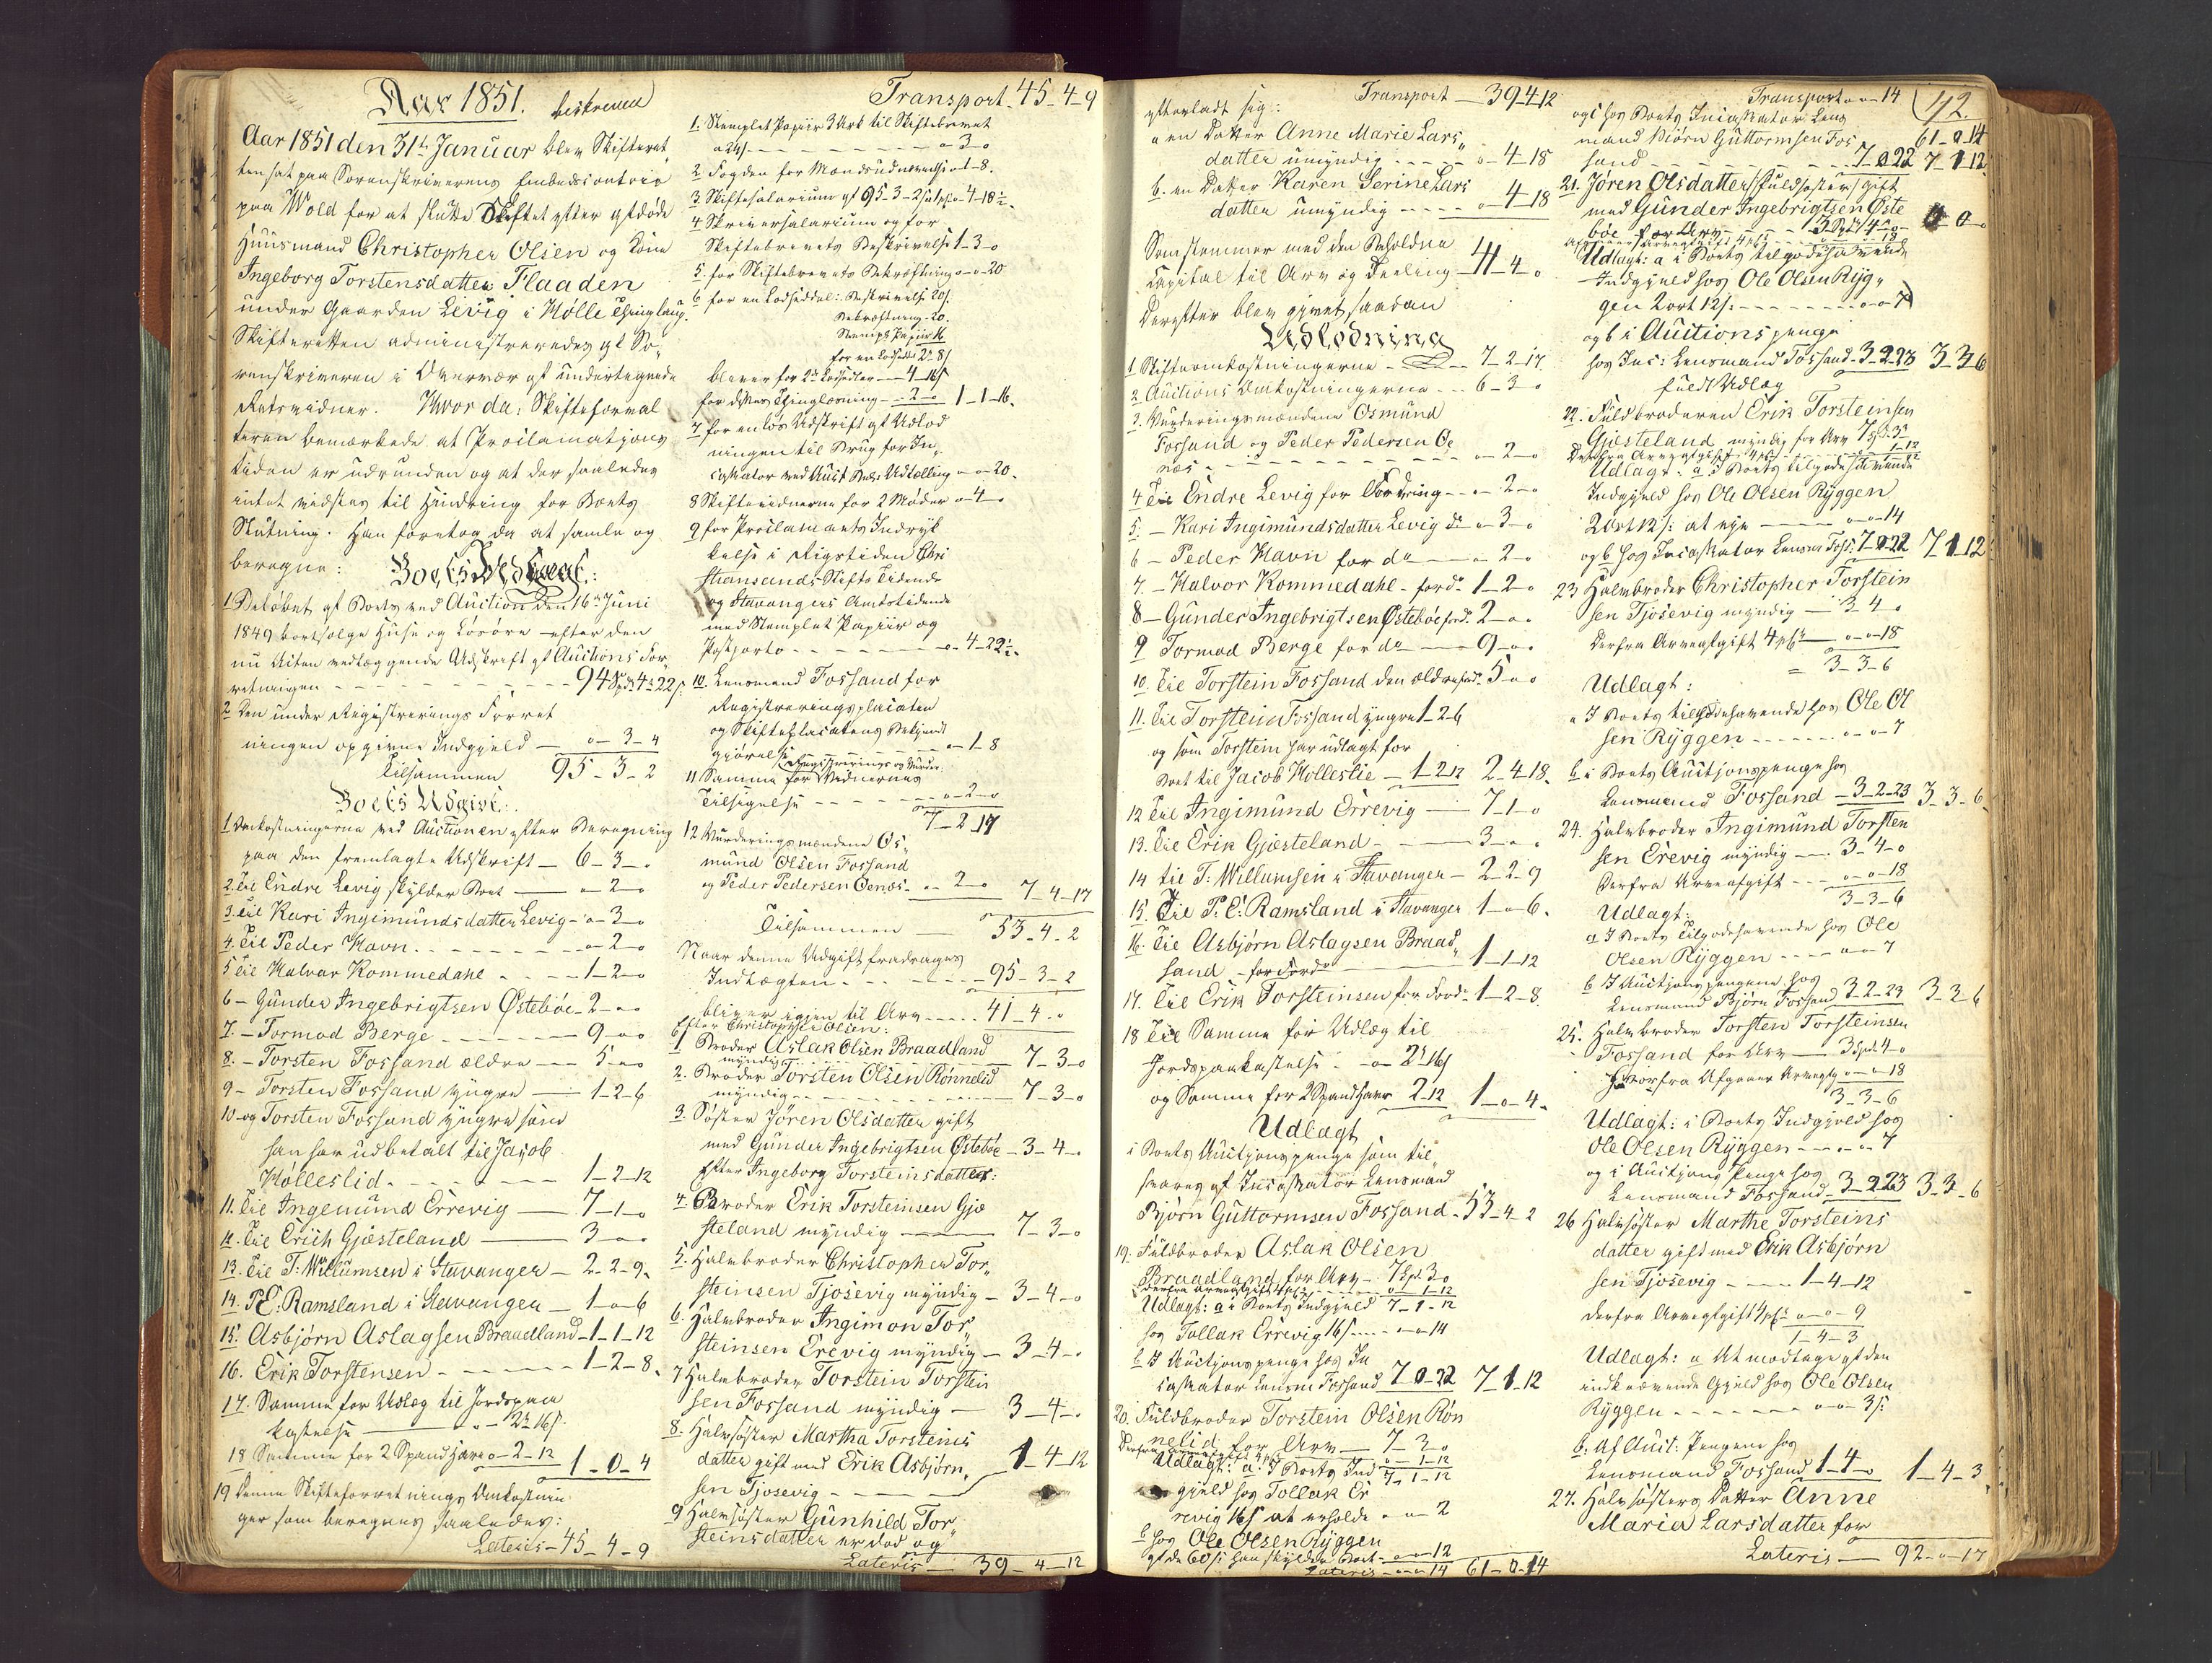 Aar 1851. beskreved
Aar 1851 den 31te Januar blev Skifteret,
ten sat paa Sorenskriverens Embedscontoir
paa Wold for at slutte Skiftet efter afdøde
Huusmand Christopher Olsen og Kone
Ingeborg Torstensdatter Flaaden
under Gaarden Levig i Holle Thinglaug.
Skifteretten administreredes af So,
renskriveren i Overvær af undertegnede
Retsvidner. Hvor da: Skifteforval
teren bemærkede at Proclamations
tiden er udrunden og at der saaledes
intet vidstes til Hindring for Boets
Slutning. Han foretog da at samle og
beregne: Boets Indtægt:
1 Beløbet af Boets ved Auction den 16de Juni
1849 bortsolgte Huse og Løsøre efter den
nu Acten vedlæggende Udskrift af Auctions For,
retningen - - - 94 Spd 4 # 22 s
2 Den under Registrerings Forret
ningen opgivne Indgjeld — o-3-4
Tilsammen 95-3-2
Boets Udgivt:
1 Omkostningerne ved Auctionen efter Beregning
paa den fremlagte Udskrift — 6-3-o
2. Til Endre Levig skylder Boet — o-2-o
3. Til Kari Ingimundsdatter Levig - o-3-o
4. Til Peder Havn - - - o-2-o
5 Til Halvor Kommedahl - - - 1-2-o
6 - Gunder Ingebrigtsen Østebøe - 2-o-o
7. - Tormod Berge - - - 9-o-o
8. - Torsten Fossand ældre — 5-o-o
9 - Torsten Fossand yngre — 1-2-6
10 - og Torsten Fossand yngre som
han har udbetalt til Jacob
Hølleslid - - - 1-2-12
11. Til Ingemund Errevig — 7-1-o
12. Til Erich Gjæsteland — 3-o-o
13. Til T: Willumsen i Stavanger — 2-2-9.
14. P. E: Ramsland i Stavanger — 1-o-6
15. Asbjørn Aslagsen Braadland - 1-1-12
16. Erik Torstensen - - - 1-2-8.
17. Samme for Udlæg til Jordspaa
kastelse — o-2#16s.
18 Samme for 2 Spand Havre o-2-12 1-0-4
19 Denne Skifteforretnings Omkostnin
ger som beregnes saaledes:
Lateris - 45-4-9
Transport - 45-4-9
1. Stemplet Papiir 3 Ark til Skiftebrevet
a 24s — o-3-o
2 Fogden for Mandsudnævnelse o-1-8.
3. Skiftesalarium af 95-3-2 o-4-18½.
4 Skriversalarium og for
Skiftebrevets Beskrivelse 1-3-o
5. for Skiftebrevets Bekræftning o-o-20
6 for en Lodseddel: Beskrivelse 20s.
Bekræftning - 20.
Stempl: Papiir 16
for en Lodseddel 2# 8s
bliver for 2de Lodsedler — 4-16s
for disses Thinglæsning - 2-o 1-1-16.
7 for en løs Udskrift af Udlod
ningen til Brug for In,
cassator ved Auct. Udtælling o-o-20.
8 Skiftevidnerne for 2 Møder o-4-o
9 for Proclamaets Indryk
kelse i Rigstiden Chri
stiansands Stifts Tidende
og Stavangers Amtstidende
med Stemplet Papiir og
Postporto - - - o-4-22½.
10. Lensmand Fossand for
Registreringsplacaten
og Skifteplacatens Bekjendt
gjørelse - - - o-1-8
11 Samme for Registrerings og Vurder. Vidnernes
Tilsigelse - - - o-2-o
7-2-17
12 Vurderingsmændene Os,
mund Olsen Fossand
og Peder Pedersen Oenæs - o-2-o 7-4-17
Tilsammen — 53-4-2
Naar denne Udgift fradrages
Indtægten - - - 95-3-2
bliver igjen til Arv - - - 41-4-o
Efter Christopher Olsen:
1 Broder Aslak Olsen Braadland
myndig - - - 7-3-o
2. Broder Torsten Olsen Rønnelid
myndig - - - 7-3-o
3. Søster Jøren Olsdatter gift
med Gunder Ingebrigtsen Østebøe - 3-4-o
Efter Ingeborg Torsteinsdatter:
4. Broder Erik Torsteinsen Gjæ
steland myndig — 7-3-o
5. Halvbroder Christopher Tor,
steinsen Tjosevig myndig - 3-4-o
6. Halvbroder Ingimon Tor,
steinsen Erevig myndig - 3-4-o
7 Halvbroder Torstein Torstein
sen Fossand myndig - 3-4-o
8. Halvsøster Martha Torsteins
datter gift med Erik Asbjørn, 1-4-12
sen Tjosevig - - -
9 Halvsøster Gunhild Tor,
steinsdatter er død og
Lateris - 39-4-12
Transport — 39-4-12
efterladt sig:
a en Datter Anne Marie Lars,
datter umyndig - - - o-4-18
b. en Datter Karen Serine Lars
datter umyndig - - - o-4-18
Somstemmer med den Beholdne
Capital til Arv og Deeling - 41-4-o
Derefter blev gjort saadan
Udlodning
1 Skifteomkostningerne - 7-2-17.
2 Auctions Omkostningerne - - 6-3-o
3. Vurderingsmændene Osmund
Fossand og Peder Pedersen Oe
næs - - - o-2-o
4 Til Endre Levig for Fordring - - o-2-o
5. - Kari Ingimundsdatter Levig do - o-3-o
6 - Peder Havn for do — o-2-o
7. - Halvor Kommedahl - for do 1-2-o
8 - Gunder Ingebrigtsen Østebøe for do 2-o-o
9 Tormod Berge for do — 9-o-o
10. Til Torstein Fossand den ældre for do 5-o-o
11. Til Torstein Fossand yngre 1-2-6
og som Torstein har udlagt for
Boet til Jacob Holleslie — 1-2-12 2-4-18.
12 Til Ingimund Errevig — 7-1-o
13. Til Erik Gjæsteland - — 3-o-o
14 til T: Willumsen i Stavanger — 2-2-9
15. Til P. E: Ramsland i Stavanger 1-o-6.
16. Til Asbjørn Aslagsen Braad,
sand - for Fordr — 1-1-12
17. Til Erik Torsteinsen for Fordr 1-2-8.
18 Til Samme for Udlæg til
Jordspaakastelse - o-2#16s
og Samme for 2 Spand Havre 2-12 1-o-4.
Udlagt
i Boets Auctionspenge som til,
svares af Incassator Lensmand
Bjørn Guttormsen Fossand - 53-4-2
19. Fuldbroder Aslak Olsen
Braadland for Arv - 7 Spd 3-o
Derfra Arveafgift 4 pCt - - o-1-12
Udlagt: a i Boets Indgjeld 7-1-12
hos Tollak Errevig 16s - - o-o-14
b I Auctionspenge hos In
cassator Lensm Fossand 7-0-22 7-1-12
20. Fuldbroder Torstein Olsen Røn
nelid for Arv — 7-3-o
Derfra Arveafgift 4 pCt o-1-12
Udlagt: a. I Boets Ind 7-1-12
gjeld hos Tollak Er
revig 16s at erholde - o-o-2
b hos Ole Olsen Ryggen
af de 60s han skylder Boet - o-o-12
Lateris - o-o-14 61-0-14
Transport o-o-14 42.
og c hos Boets Incassator Lens 61-0-14
mand Bjørn Guttormsen Fos
sand - - - 7-0-22 7-1-12
21. Jøren Olsdatter (Fuldsøster) gift
med Gunder Ingebrigtsen Øste
bøe for Arv - - - 3 Spd 4-o-
Udlagt: a i Boets tilgodehavende
Indgjeld hos Ole Olsen Ryg,
gen 2 ort 12s: - - - o-o-7
og b i Auctionspenge
hos Inc: Lensmand Fossand - 3-2-23 3-3-6
fuldt Udlæg
22. Fuldbroderen Erik Torsteinsen
Gjæsteland myndig for Arv 7 Spd 3-
Udlagt - a I Boets tilgodehavende
Indgjeld hos Ole Olsen Ryggen
2 Ort 12s: at eje — o-o-14
og b hos Incassator Lensm Foss: 7-0-22 7-1-12
23 Halvbroder Christopher Torstein
sen Tjosevig myndig — 3-4-o
Derfra Arveafgift 4 pCt — o-o-18
= 3-3-6
Udlagt:
a I Boets tilgodehavende hos Ole Ol
sen Ryggen - - - o-o-7
b i Boets Auctionspenge hos
Lensmand Fossand - 3-2-23 3-3-6.
24. Halvbroder Ingimund Torsten
sen Erevig myndig — 3-4-o
Derfra Arveafgift - - o-o-18
3-3-6
Udlagt:
a I Boets Tilgodehavende hos Ole
Olsen Ryggen - - - o-o-7
b I Auctionspengene hos
Lensmand Bjørn Fossand 3-2-23 3-3-6
25. Halvbroder Torsten Torsteinsen
Fossand for Arv — 3 Spd 4-o
Hvorfra Afgaaer Arveafg o-o-18
3-3-6
Udlagt: i Boets Indgjeld hos
Ole Olsen Ryggen - - o-o-7
og i Auctions Penge hos
Lensmand Fossand - 3-2-23 3-3-6
26 Halvsøster Marthe Torsteins
datter gift med Erik Asbjørn
sen Tjosevig - - - 1-4-12
derfra Arveafgift 4 pCt o-o-9
1-4-3
Udlagt: a At modtage af den
indkrævende Gjeld hos Ole Olsen
Ryggen - - - o-o-3s:
b. Af Auct: Pengene hos
Lensmand Fossand 1-4-o 1-4-3
27. Halvsøsters Datter Anne
Maria Larsdatter for
Lateris — 92-o-17